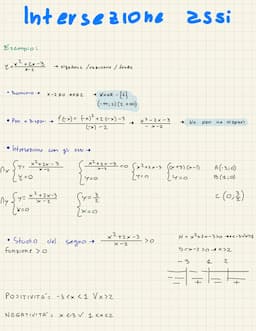 Intersezione assi
Esempio:
y = x²+2x-3 / x-2 → algebrica / razionale / fratta
• Dominio → x-2≠0 → x≠2 → ∀x∈R - {2}
(-∞; 2) (2; +∞)
• Pari o dispari → f(-x) = (-x)²+2(-x)-3 / (-x)-2 → x²-2x-3 / -x-2 → Né pari né dispari
• Intersezione con gli assi →
∩x { y = x²+2x-3 / x-2 { x²+2x-3 / x-2 = 0 { x²+2x-3 { (x+3)(x-1) A(-3;0)
y=0 y=0 y=0 y=0 B(1;0)
∩y { y = x²+2x-3 / x-2 { y = 3/2 C (0; 3/2)
x=0 x=0
• Studio del segno → x²+2x-3 / x-2 > 0
funzione > 0
N = x²+2x-3>0 → x<-3 ∨ x>1
D = x-2>0 → x>2
-3 1 2
- + - +
POSITIVITÀ: -3<x<1 ∨ x>2
NEGATIVITÀ: x<-3 ∨ 1<x<2